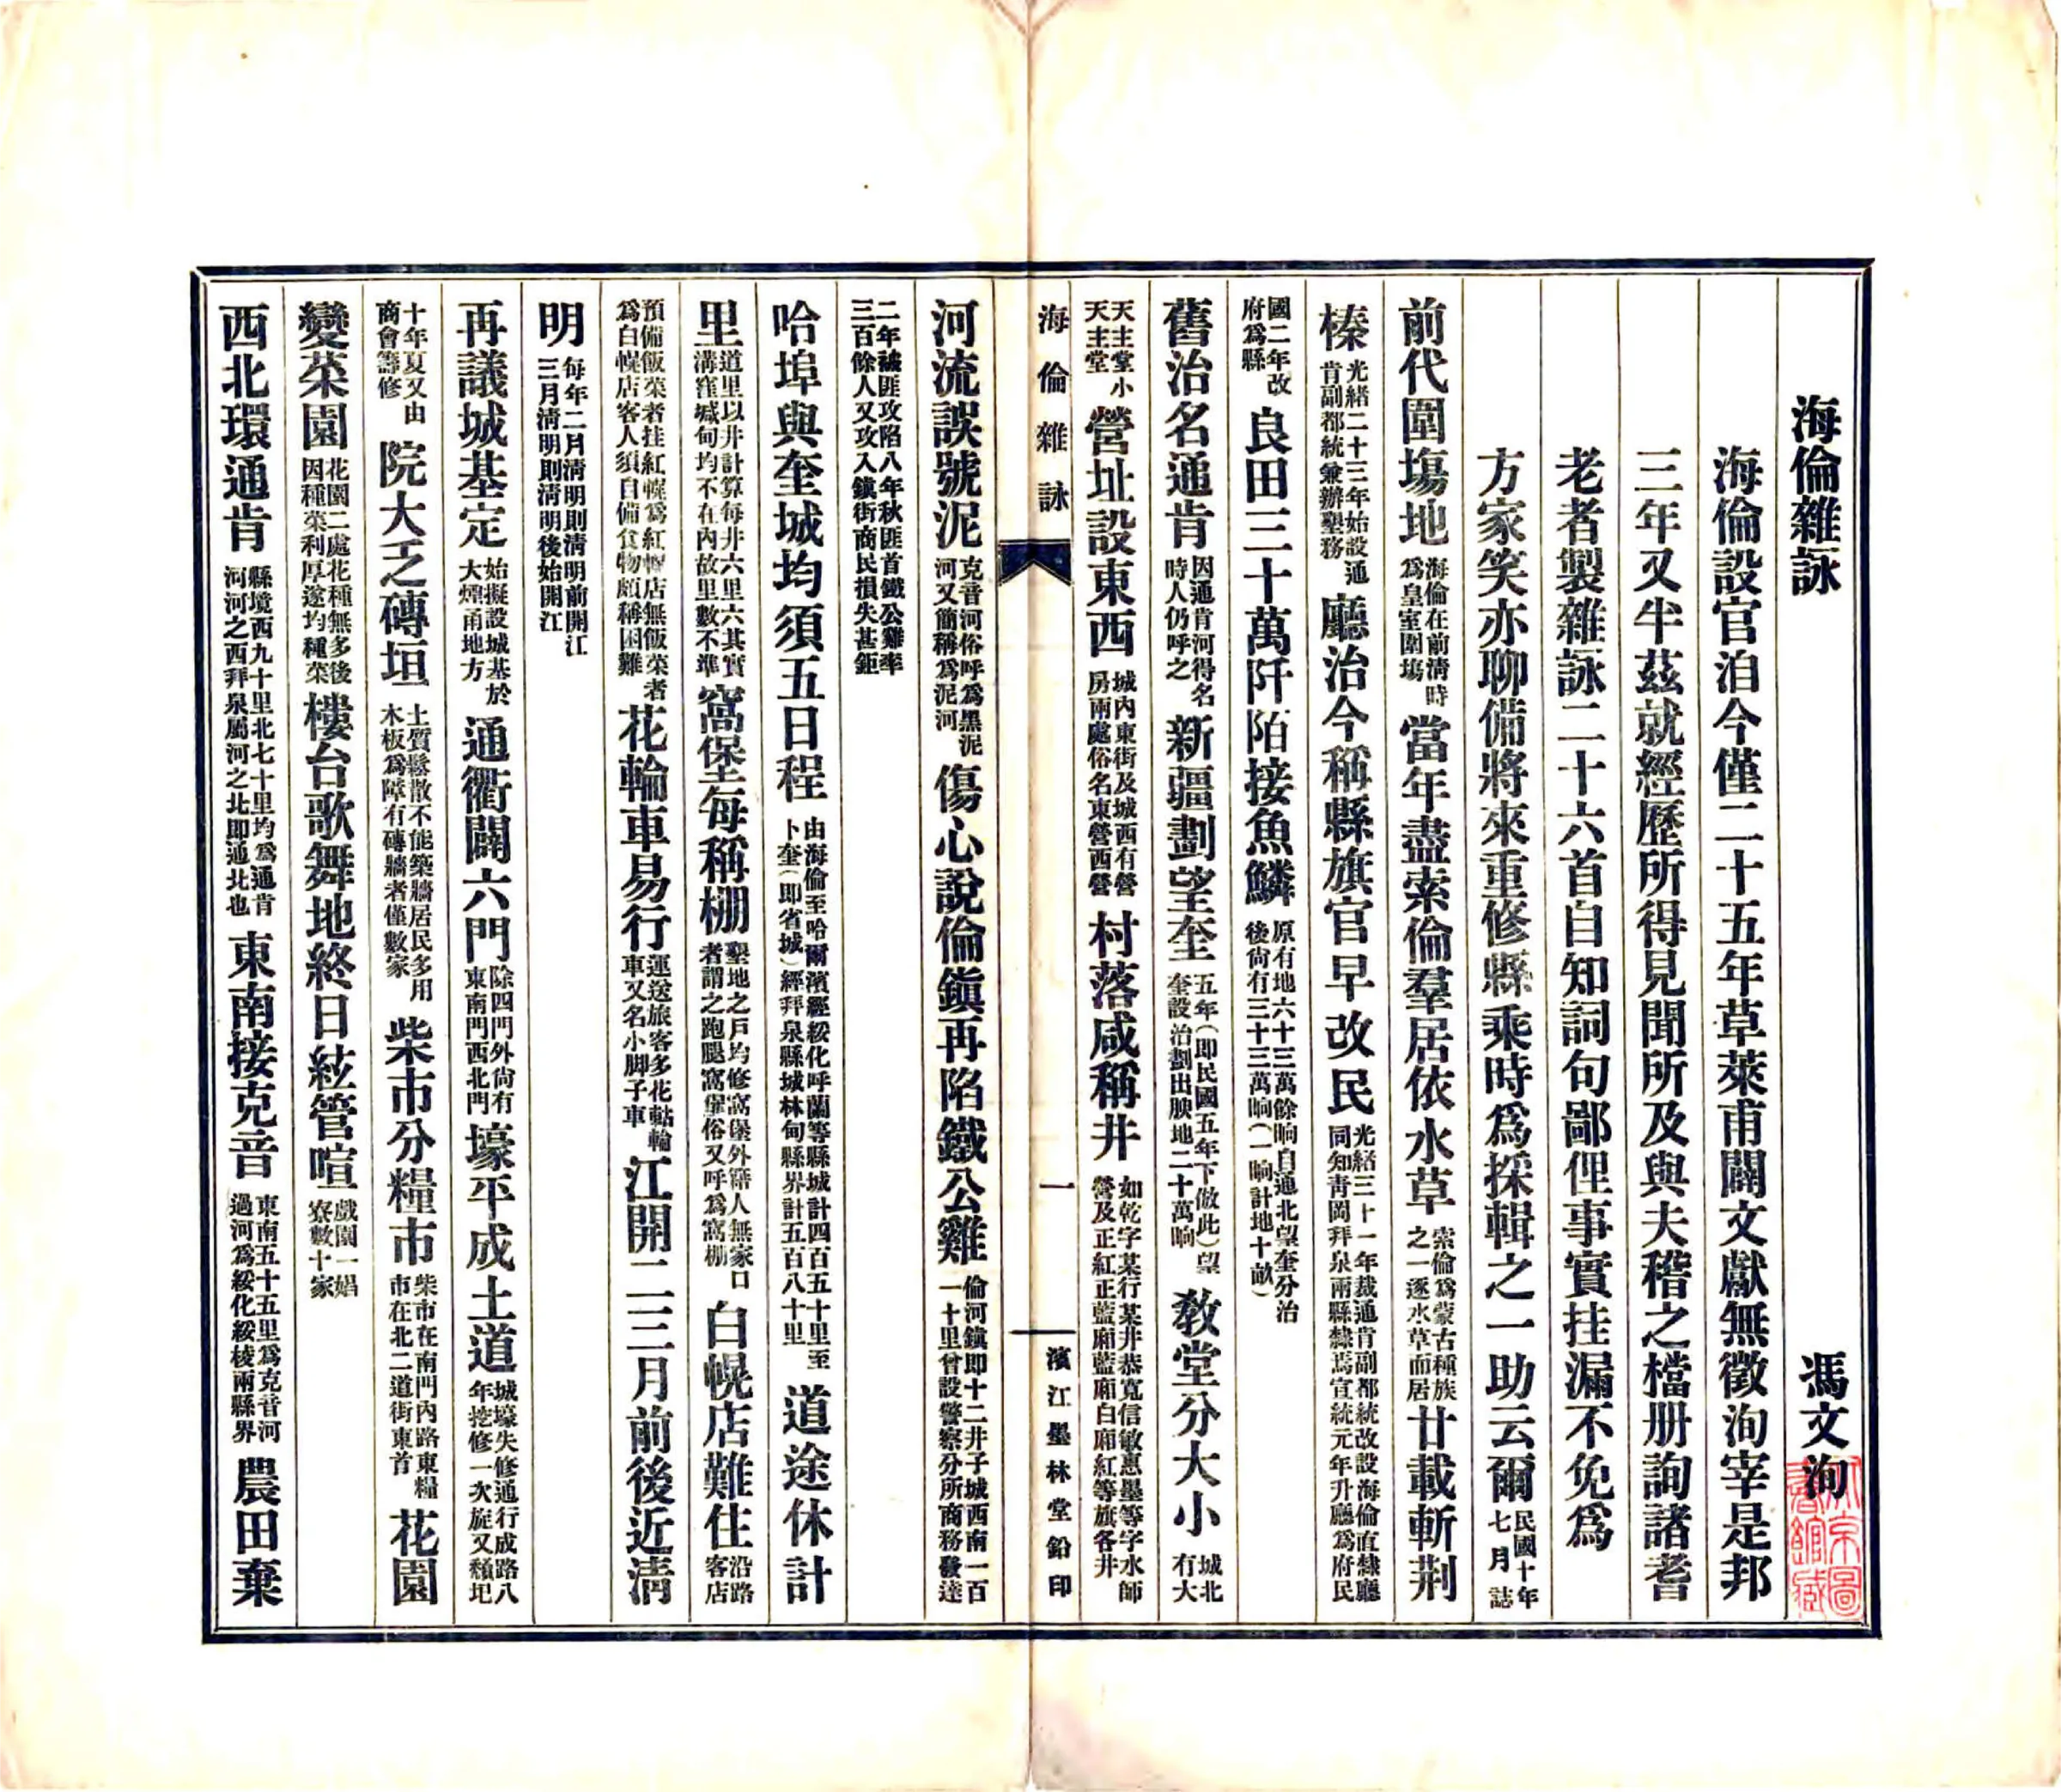 海倫雜詠　馮文洵
海倫設官洎今僅二十五年草萊甫闢文獻無徵洵宰是邦
三年又半茲就經歷所得見聞所及與夫稽之檔册詢諸耆
老者製雜詠二十六首自知詞句鄙俚事實挂漏不免爲
方家笑亦聊備將來重修縣乘時爲採輯之一助云爾民國十年七月誌
前代圍塲地海倫在前淸時爲皇室圍塲當年盡索倫羣居依水草索倫爲蒙古種族之一逐水草而居廿載斬荆
榛光緒二十三年始設通肯副都統兼辦墾務廳治今稱縣旗官早改民光緒三十一年裁通肯副都統改設海倫直隸廳同知靑岡拜泉兩縣隸焉宣統元年升廳爲府民
國二年改府爲縣良田三十萬阡陌接魚鱗原有地六十三萬餘晌自通北望奎分治後尙有三十三萬晌(一晌計地十畝)
舊治名通肯因通肯河得名時人仍呼之新疆劃望奎五年(即民國五年下倣此)望奎設治劃出腴地二十萬晌敎堂分大小城北有大
天主堂小天主堂營址設東西城內東街及城西有營房兩處俗名東營西營村落咸稱井如乾字某行某井恭寬信敏惠墨等字水師營及正紅正藍廂藍廂白廂紅等旗各井
海倫雜詠　一　濱江墨林堂鉛印
河流誤號泥克音河俗呼爲黑泥河又簡稱爲泥河傷心說倫鎭再陷鐵公雞倫河鎭即十二井子城西南一百一十里曾設警察分所商務發達
二年被匪攻陷八年秋匪首鐵公雞率三百餘人又攻入鎭街商民損失甚鉅
哈埠與奎城均須五日程由海倫至哈爾濱經綏化呼蘭等縣城計四百五十里至卜奎(即省城)經拜泉縣城林甸縣界計五百八十里道途休計
里道里以井計算每井六里六其實溝窪堿甸均不在內故里數不準窩堡每稱棚墾地之戶均修窩堡外籍人無家口者謂之跑腿窩堡俗又呼爲窩棚白幌店難住沿路客店
預備飯菜者挂紅幌爲紅幌店無飯菜者爲白幌店客人須自備食物頗稱困難花輪車易行運送旅客多花軲輪車又名小脚子車江開二三月前後近淸
明每年二月淸明則淸明前開江三月淸明則淸明後始開江
再議城基定始擬設城基於大煙甬地方通衢闢六門除四門外尙有東南門西北門壕平成土道城壕失修通行成路八年挖修一次旋又頹圮
十年夏又由商會籌修院大乏磚垣土質鬆散不能築牆居民多用木板爲障有磚牆者僅數家柴市分糧市柴市在南門內路東糧市在北二道街東首花園
變菜園花園二處花種無多後因種菜利厚遂均種菜樓台歌舞地終日絃管喧戲園一娼寮數十家
西北環通肯縣境西九十里北七十里均爲通肯河河之西拜泉屬河之北即通北也東南接克音東南五十五里爲克音河過河爲綏化綏棱兩縣界農田棄